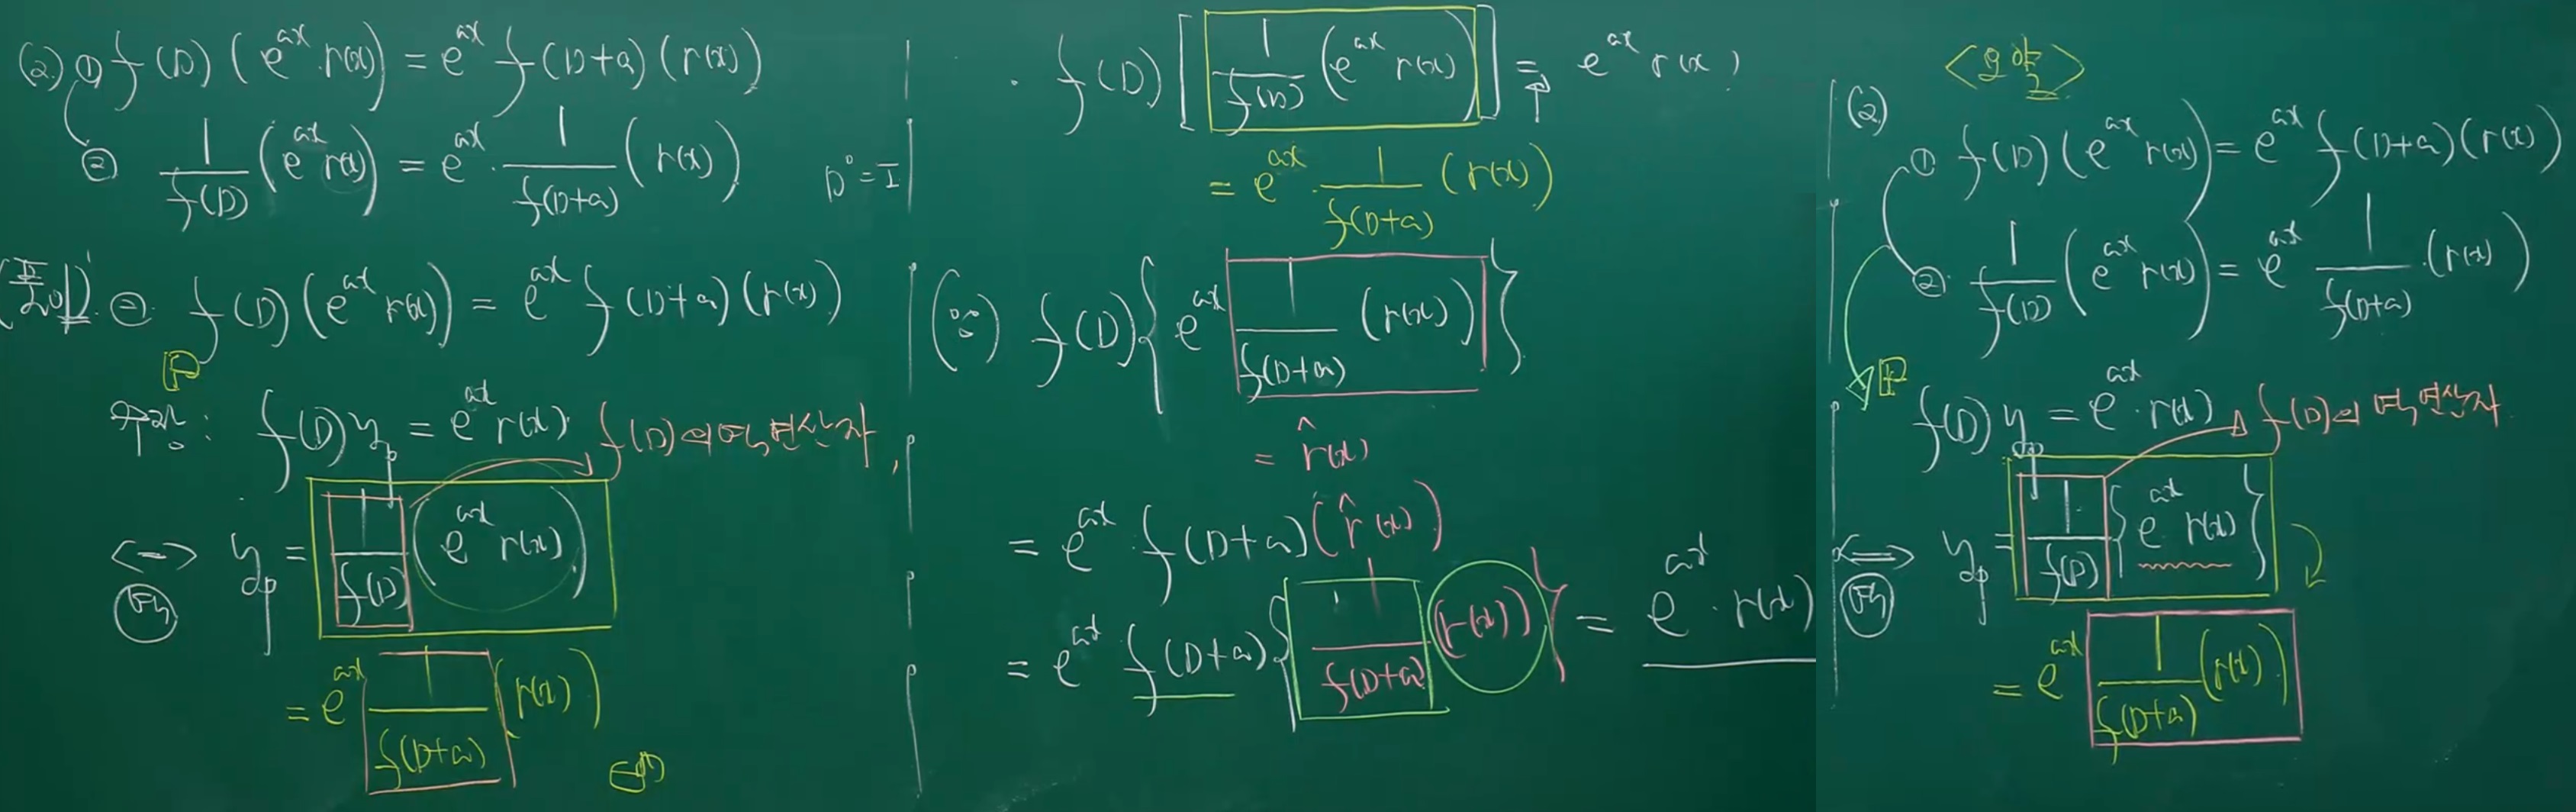 (2) ① f(D)(e^{ax} r(x)) = e^{ax} f(D+a)(r(x))
② 1/f(D) (e^{ax} r(x)) = e^{ax} · 1/f(D+a) (r(x))
D⁰ = I
(풀이) f(D)(e^{ax} r(x)) = e^{ax} f(D+a)(r(x))
f(D) y_p = e^{ax} r(x) f(D)의 역연산자
<=> y_p = 1/f(D) (e^{ax} r(x))
역
= e^{ax} 1/f(D+a) (r(x))
f(D) [ 1/f(D) (e^{ax} r(x)) ] = e^{ax} r(x)
= e^{ax} · 1/f(D+a) (r(x))
(∵) f(D) { e^{ax} 1/f(D+a) (r(x)) }
= r̂(x)
= e^{ax} · f(D+a)(r̂(x))
= e^{ax} f(D+a) { 1/f(D+a) (r(x)) } = e^{ax} · r(x)
<요약>
(2)
① f(D)(e^{ax} r(x)) = e^{ax} f(D+a)(r(x))
② 1/f(D) (e^{ax} r(x)) = e^{ax} 1/f(D+a) · (r(x))
f(D) y_p = e^{ax} · r(x) f(D)의 역연산자
<=> y_p = 1/f(D) { e^{ax} r(x) }
역
= e^{ax} 1/f(D+a) (r(x))